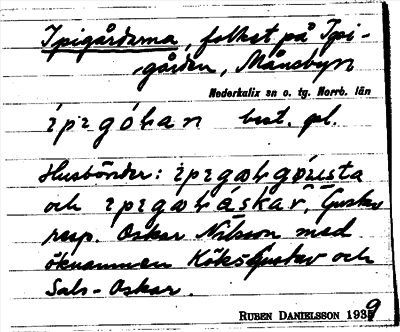 Ipigårdarna, folket på Ipi-
gården, Månsbyn
Nederkalix sn o. tg. Norrb. län
best. pl.
Husbönder:
och Gustav
resp. Oskar Nilsson med
öknamnen Köks-Gustav och
Sals-Oskar.
RUBEN DANIELSSON 1939